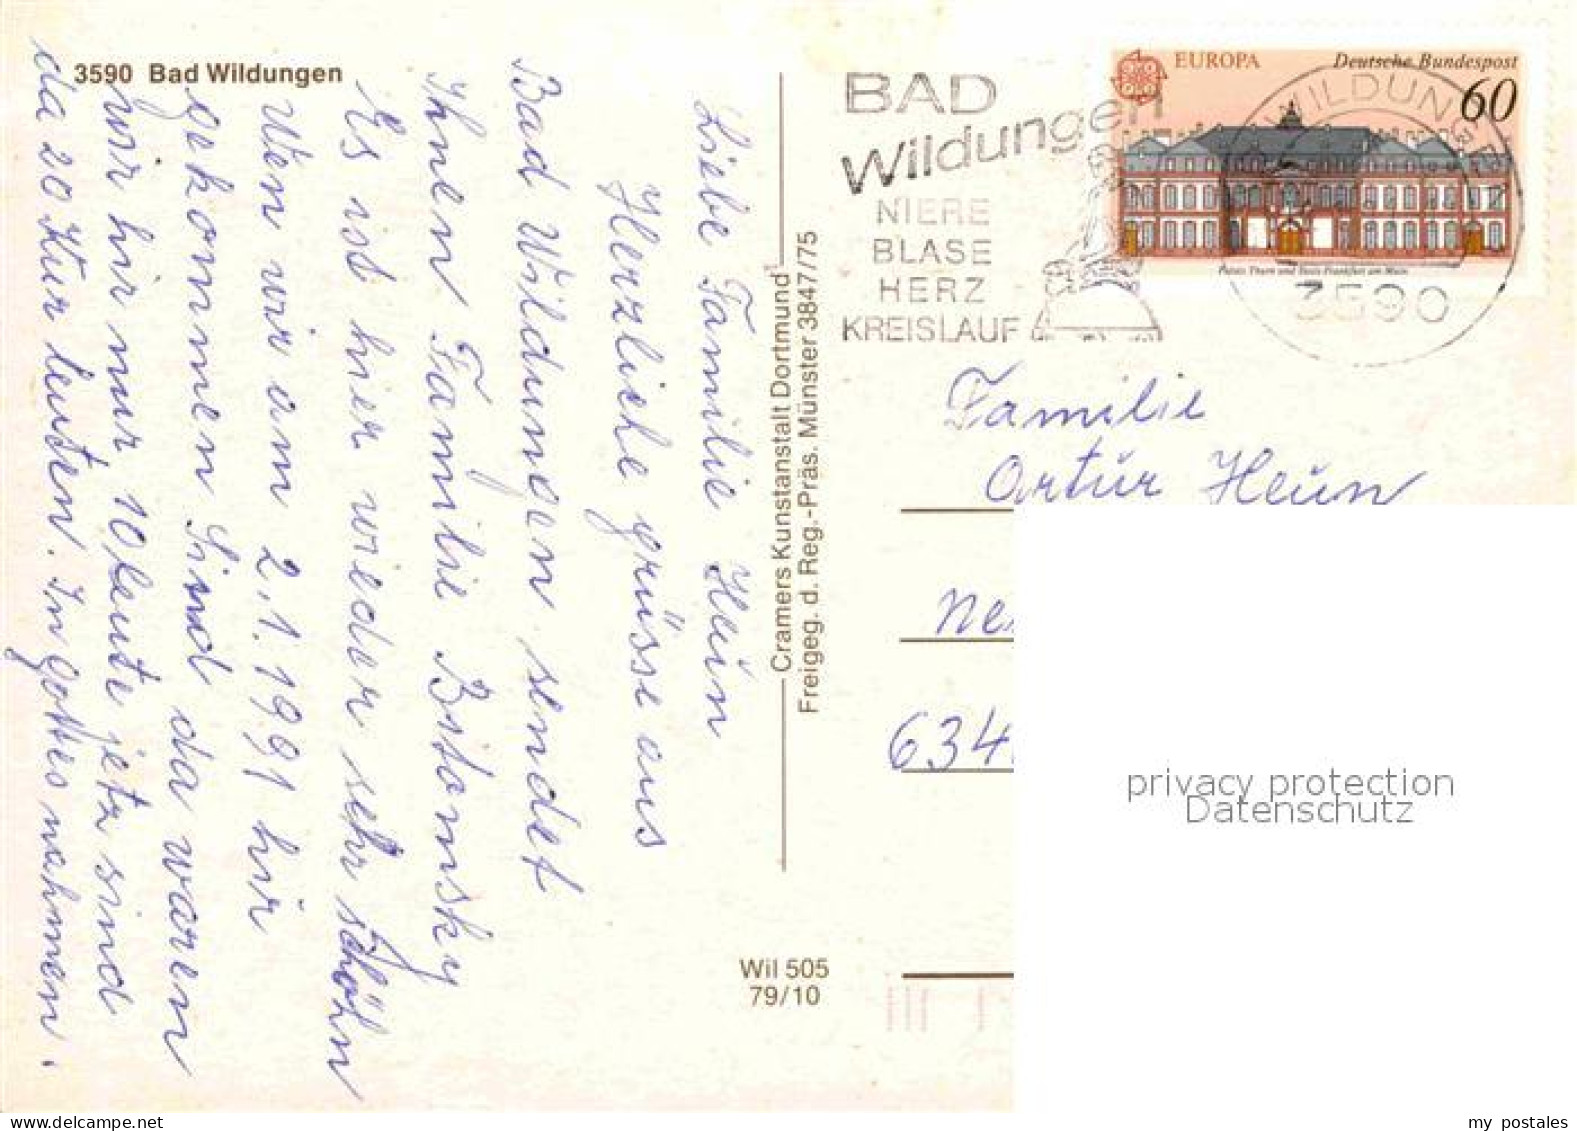 3590 Bad Wildungen
Liebe Familie Heün
Herzliche grüsse aus
Bad Wildungen sendet
Ihnen Familie Bstomsky
Es ist hier wieder sehr schöhn
Wen wir am 2.1.1991 hir
gekommen Sind da waren
wir hir nur 10 leute jetz sind
da 20 Kur leuten. In gottes nahmen.
Cramers Kunstanstalt Dortmund
Freigeg. d. Reg.-Präs. Münster 3847/75
Wil 505
79/10
BAD
Wildungen
NIERE
BLASE
HERZ
KREISLAUF
EUROPA
Deutsche Bundespost
60
Palais Thurn und Taxis Frankfurt am Main
WILDUNGEN
3590
Familie
Ortür Heün
634
privacy protection
Datenschutz
my postales